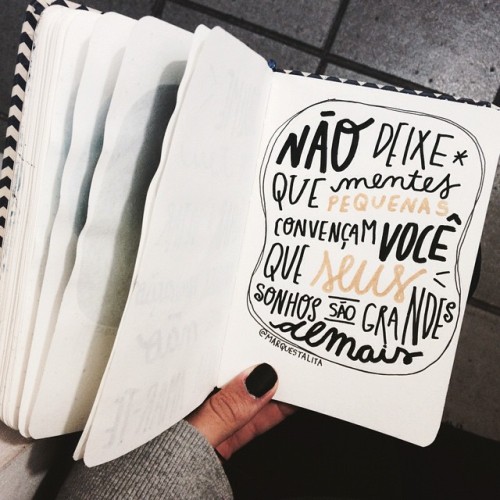 NÃO DEIXE*
QUE mentes
PEQUENAS
CONVENÇAM VOCÊ
QUE seus
SONHOS SÃO GRANDES
demais
@MARQUESTALITA